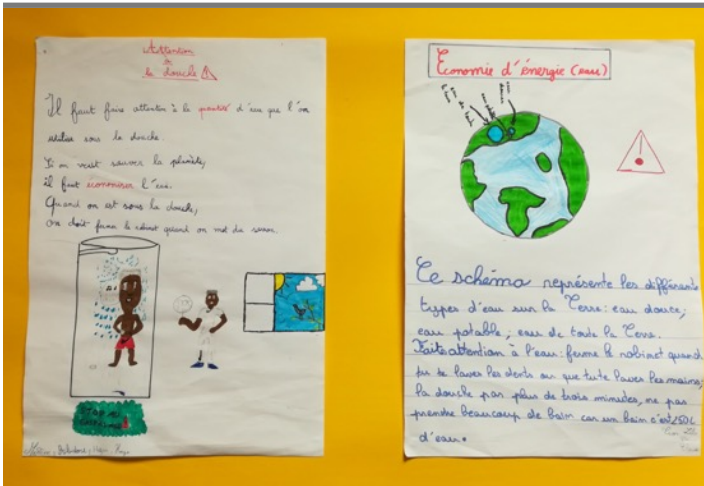 Attention
à
la douche
Il faut faire attention à la quantité d'eau que l'on
utilise sous la douche.
Si on veut sauver la planète,
il faut économiser l'eau.
Quand on est sous la douche,
on doit fermer le robinet quand on met du savon.
STOP AU
Économie d'énergie (eau)
Ce schéma représente les différents
types d'eau sur la Terre: eau douce;
eau potable; eau de toute la Terre.
Faite attention à l'eau: ferme le robinet quand
tu te laves les dents ou que tu te laves les mains;
la douche pas plus de trois minutes, ne pas
prendre beaucoup de bain car un bain c'est 150L
d'eau.